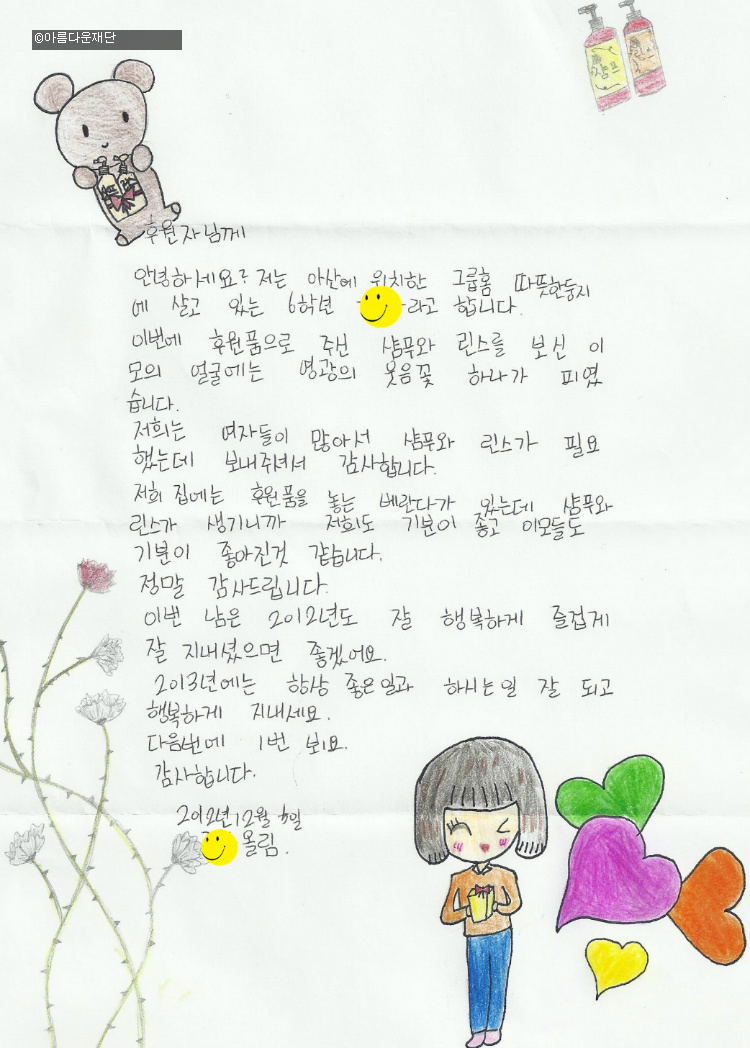 ©아름다운재단
샴프
후원자님께
안녕하세요? 저는 아산에 위치한 그룹홈 따뜻한둥지
에 살고 있는 6학년 라고 합니다.
이번에 후원품으로 주신 샴푸와 린스를 보신 이
모의 얼굴에는 영광의 웃음꽃 하나가 피였
습니다.
저희는 여자들이 많아서 샴푸와 린스가 필요
했는데 보내주셔서 감사합니다.
저희 집에는 후원품을 놓는 베란다가 있는데 샴푸와
린스가 생기니까 저희도 기분이 좋고 이모들도
기분이 좋아진것 같습니다.
정말 감사드립니다.
이번 남은 2012년도 잘 행복하게 즐겁게
잘 지내셨으면 좋겠어요.
2013년에는 항상 좋은일과 하시는일 잘 되고
행복하게 지내세요.
다음번에 1번 봬요.
감사합니다.
2012년 12월 일
올림.